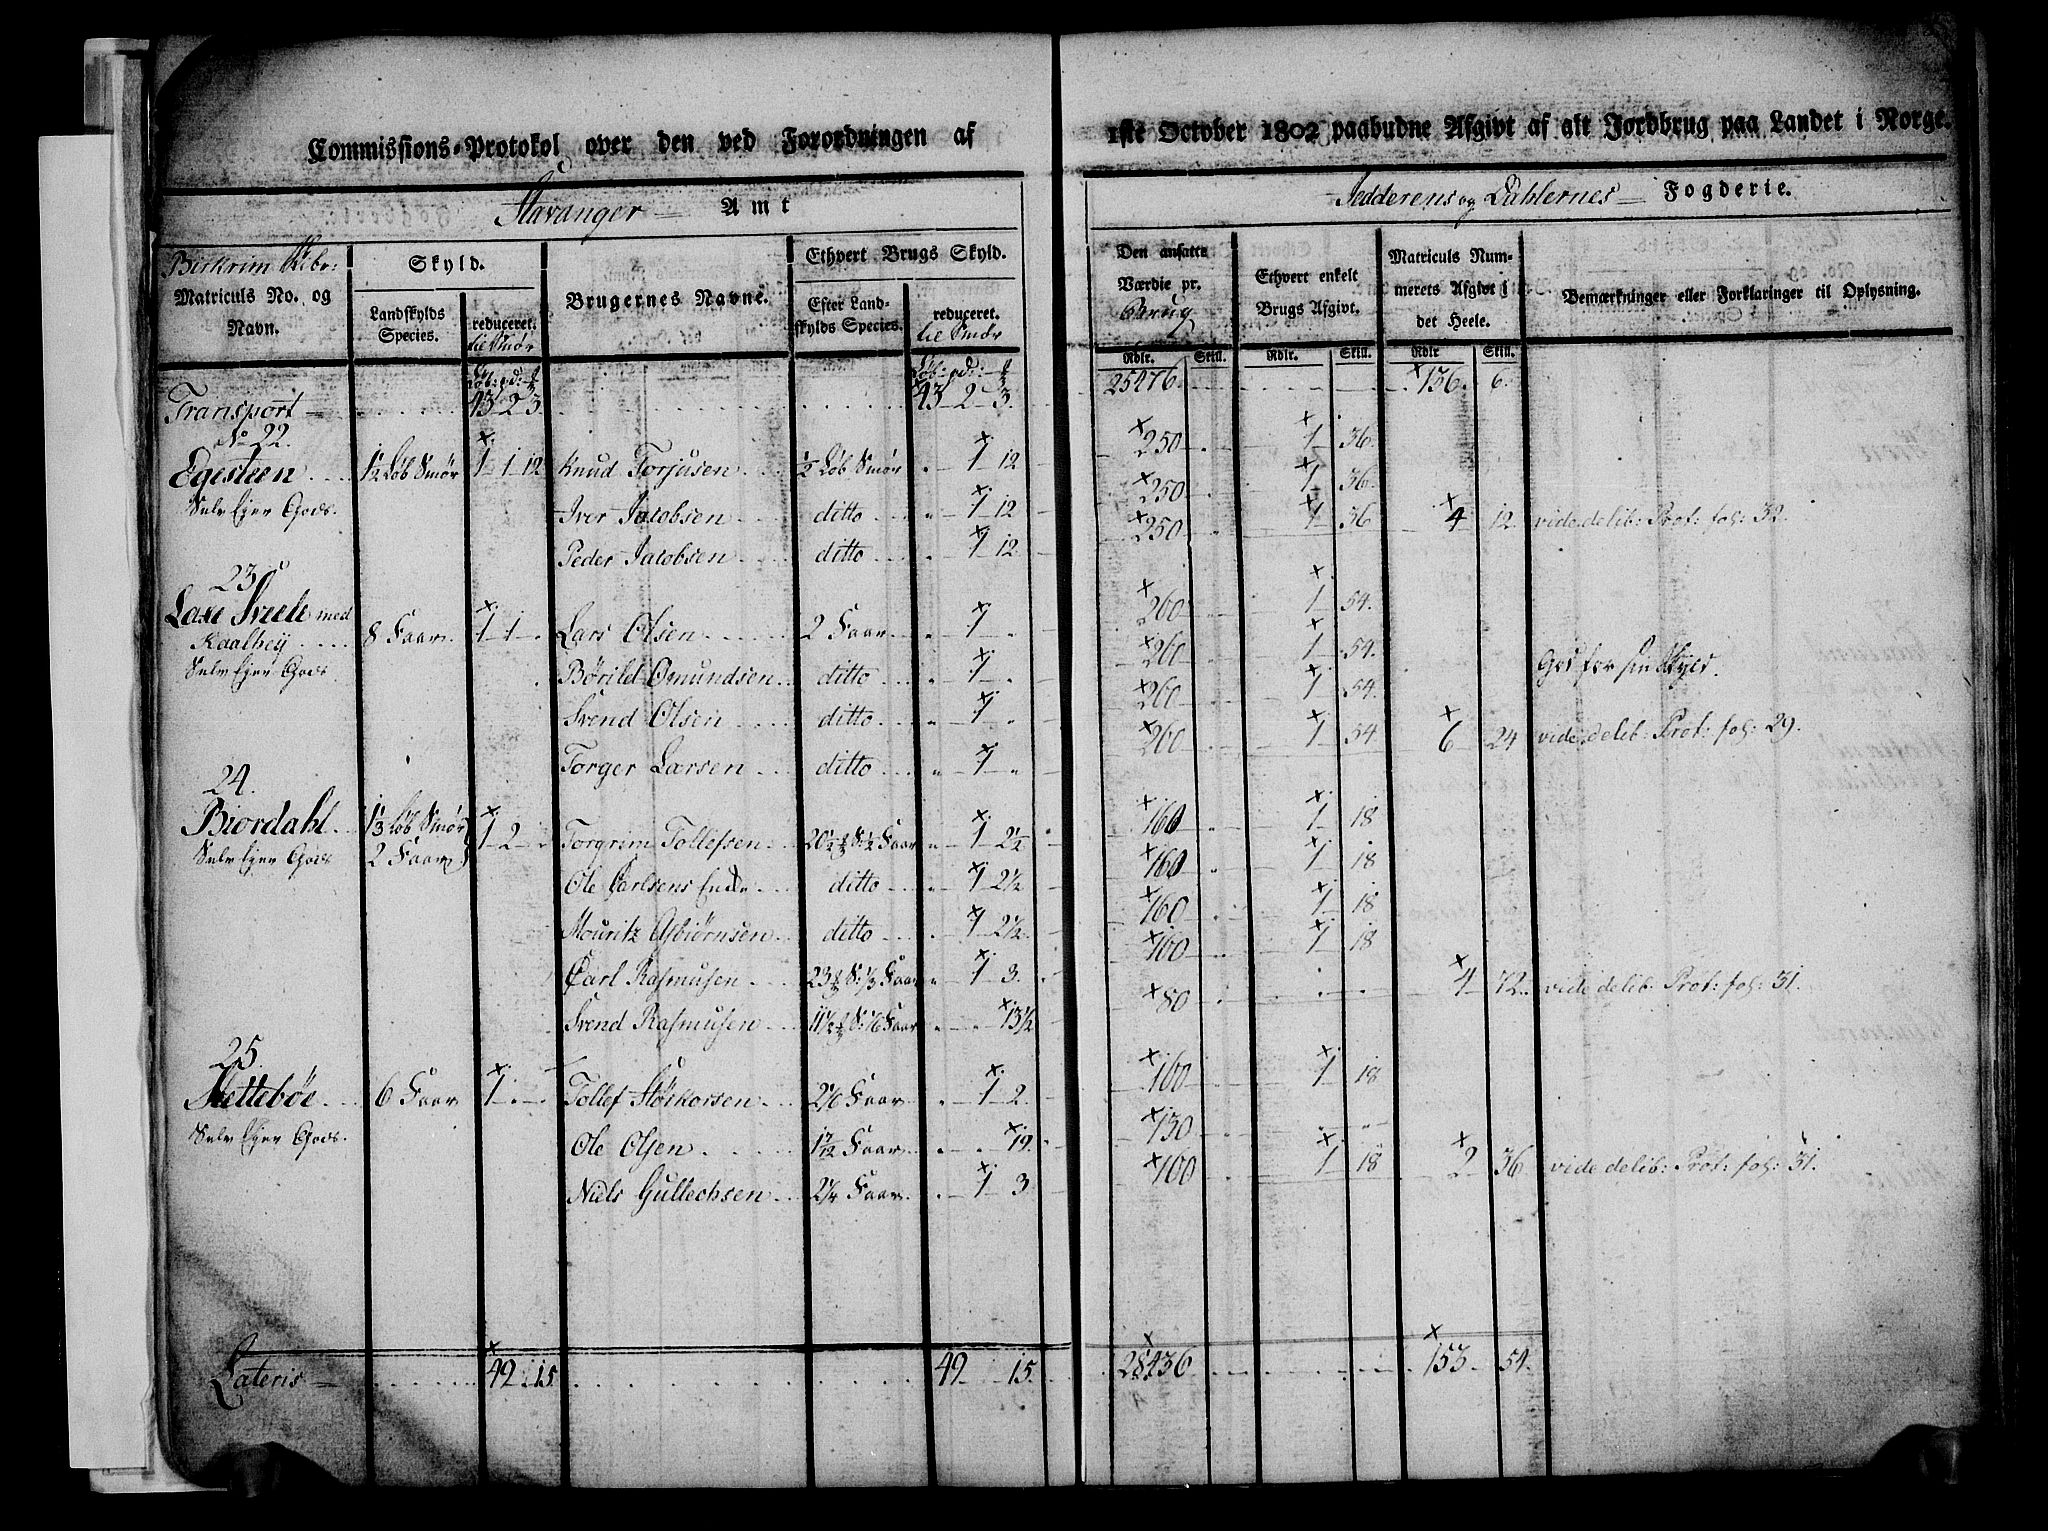 Commissions-Protokol over den ved Forordningen af 1ste October 1802 paabudne Afgivt af alt Jordbrug paa Landet i Norge.
Stavanger Amt
Jedderens og Dahlernes Fogderie.
Birkrim
Matriculs No. og Navn.
Skyld.
Landskylds Species.
reduceret. til Smør
Brugernes Navne.
Ethvert Brugs Skyld.
Efter Landskylds Species.
reduceret. til Smør
Den ansatte Værdie pr. Brug
Ethvert enkelt Brugs Afgivt.
Matriculs Nummerets Afgivt i det Heele.
Bemærkninger eller Forklaringer til Oplysning.
Rdlr. Skill. Rdlr. Skill. Rdlr Skill.
Transport 43 2 3 43 2 3 25476 136 6
No 22.
Egesteen 1½ Løb Smør 1 1 12 Knud Torjusen ½ Løb Smør 1 12 250 1 36
Selv Ejer Gods. Iver Jacobsen ditto 1 12 250 1 36
Peder Jacobsen ditto 1 12 250 1 36 4 12 vide delib: Prot: fol: 32.
23
Laxe Svele med 8 Faar 1 1 Lars Olsen 2 Faar 1 260 1 54
Kaalhey
Selv Ejer Gods Børild Omundsen ditto 1 260 1 54
Svend Olsen ditto 1 260 1 54
Torger Larsen ditto 1 260 1 54 6 24 vide delib: Prot: fol: 29.
24.
Biordahl 1⅓ Løb Smør 2 Faar 1 2 Torgrim Tollefsen 1 2½ 160 1 18
Selv Ejer Gods Ole Carlsens Enke ditto 1 2½ 160 1 18
Mouritz Asbiørnsen ditto 1 2½ 160 1 18
Carl Rasmusen 1 3 160 1 18
Svend Rasmusen 13½ 80 4 72 vide delib: Prot: fol: 31.
25.
Slettebøe 6 Faar 1 Tollef Størkorsen 2⅙ Faar 1 2 160 1 18
Selv Ejer Gods. Ole Olsen 1 7/12 Faar 19 130
Niels Gullechsen 2¼ Faar 1 3 160 1 18 2 36 vide delib: Prot: fol: 31.
Lateris 49 15 49 15 28436 153 54